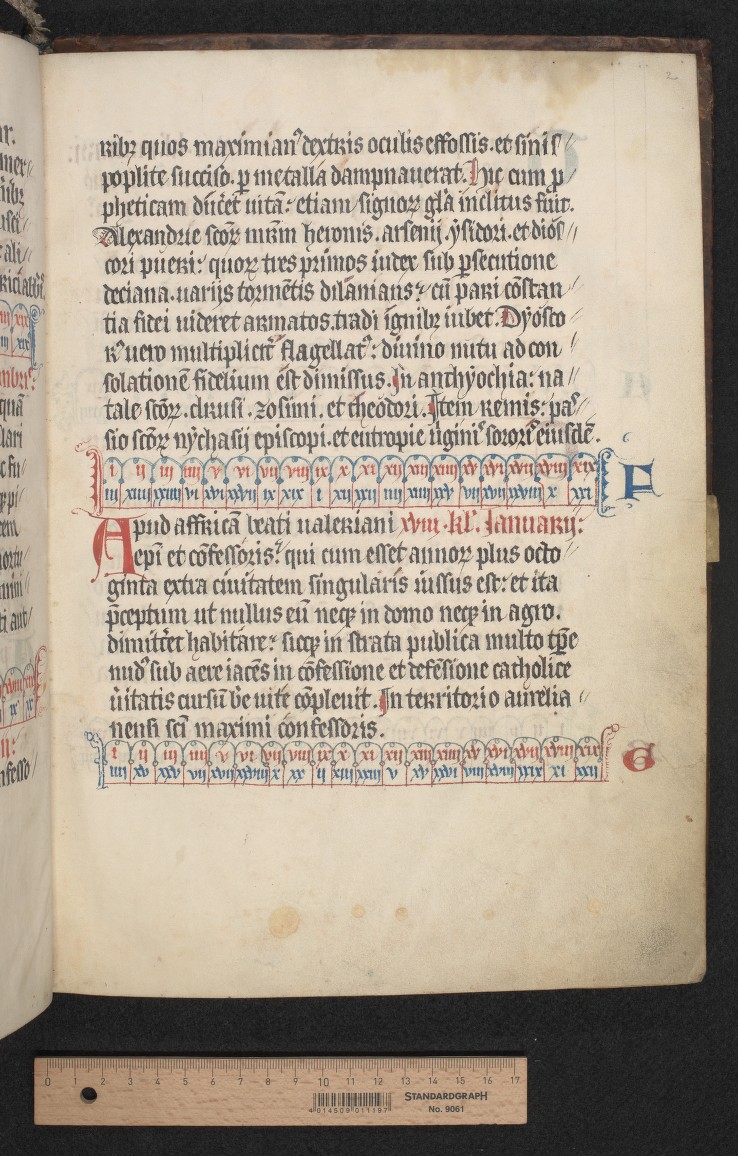 2
ribꝫ quos maximianꝰ dextris oculis effossis. et sinis//
poplite succiso. ꝑ metalla dampnauerat. Hic cum ꝓ/
pheticam duceret uitā: etiam signoꝝ glā inclitus fuit.
Alexandrie scōꝝ mrm̄ heronis. arsenij. ysidori. et dios//
cori pueri: quoꝝ tres primos iudex sub ꝑsecutione
deciana. uarijs tormētis dilanians: cū pari cōstan//
tia fidei uideret armatos. tradi ignibꝫ iubet. Dyosco//
rꝰ uero multiplicit̄ flagellatꝰ: diuino nutu ad con//
solationē fidelium est dimissus. In anthyochia: na//
tale scōꝝ. drusi. zosimi. et theodori. Item remis: pas//
sio scōꝝ nychasij episcopi. et eutropie ūginiˢ sororiˢ eiusdē.
i ii iii iiii v vi vii viii ix x xi xii xiii xiiii xv xvi xvii xviii xix
iii xiiii xxiiii vi xvi xxvii ix xix i xii xxii iiii xiiii xxv vii xvii xxviii x xxi F
Apud affricā beati ualeriani xviii. kl̄. Januarij:
epī et cōfessoris: qui cum esset annoꝝ plus octo
ginta extra ciuitatem singularis iussus est: et ita
p̄ceptum ut nullus eū neqꝫ in domo neqꝫ in agro.
dimitt̄et habitare: sicqꝫ in strata publica multo tp̄e
nudꝰ sub aere iacēs in cōfessione et defēsione catholice
ūitatis cursū bt̄e uite cōpleuit. In territorio aurelia//
nensi sc̄i maximi confessoris.
i ii iii iiii v vi vii viii ix x xi xii xiii xiiii xv xvi xvii xviii xix
iiii xv xxv vii xvii xxviii x xx ii xiii xxiii v xv xxvi viii xviii xxix xi xxii G
0 1 2 3 4 5 6 7 8 9 10 11 12 13 14 15 16 17
4 014509 011197
STANDARDGRAPH
No. 9061